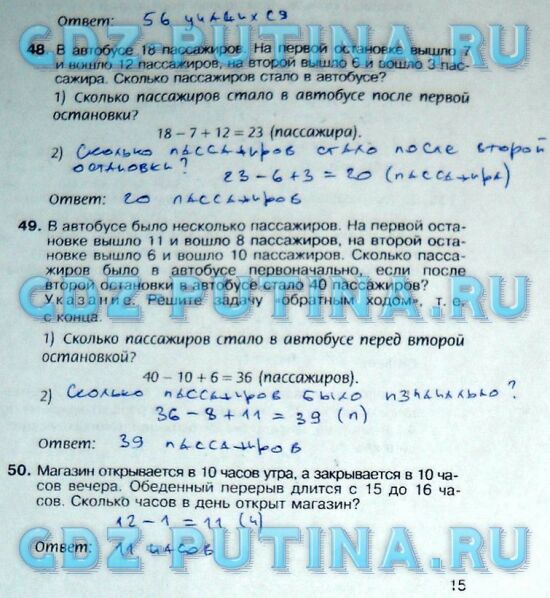 Ответ: 56 учащихся
48. В автобусе 18 пассажиров. На первой остановке вышло 7
и вошло 12 пассажиров, на второй вышло 6 и вошло 3 пас-
сажира. Сколько пассажиров стало в автобусе?
1) Сколько пассажиров стало в автобусе после первой
остановки?
18 – 7 + 12 = 23 (пассажира).
2) Сколько пассажиров стало после второй
остановки?
23 – 6 + 3 = 20 (пассажира)
Ответ: 20 пассажиров
49. В автобусе было несколько пассажиров. На первой оста-
новке вышло 11 и вошло 8 пассажиров, на второй оста-
новке вышло 6 и вошло 10 пассажиров. Сколько пасса-
жиров было в автобусе первоначально, если после
второй остановки в автобусе стало 40 пассажиров?
Указание. Решите задачу „обратным ходом», т. е.
с конца.
1) Сколько пассажиров стало в автобусе перед второй
остановкой?
40 – 10 + 6 = 36 (пассажиров).
2) Сколько пассажиров было изначально?
36 – 8 + 11 = 39 (п)
Ответ: 39 пассажиров
50. Магазин открывается в 10 часов утра, а закрывается в 10 ча-
сов вечера. Обеденный перерыв длится с 15 до 16 ча-
сов. Сколько часов в день открыт магазин?
12 – 1 = 11 (ч)
Ответ: 11 часов
15
GDZ-PUTINA.RU
GDZ-PUTINA.RU
GDZ-PUTINA.RU
GDZ-PUTINA.RU
GDZ-PUTINA.RU